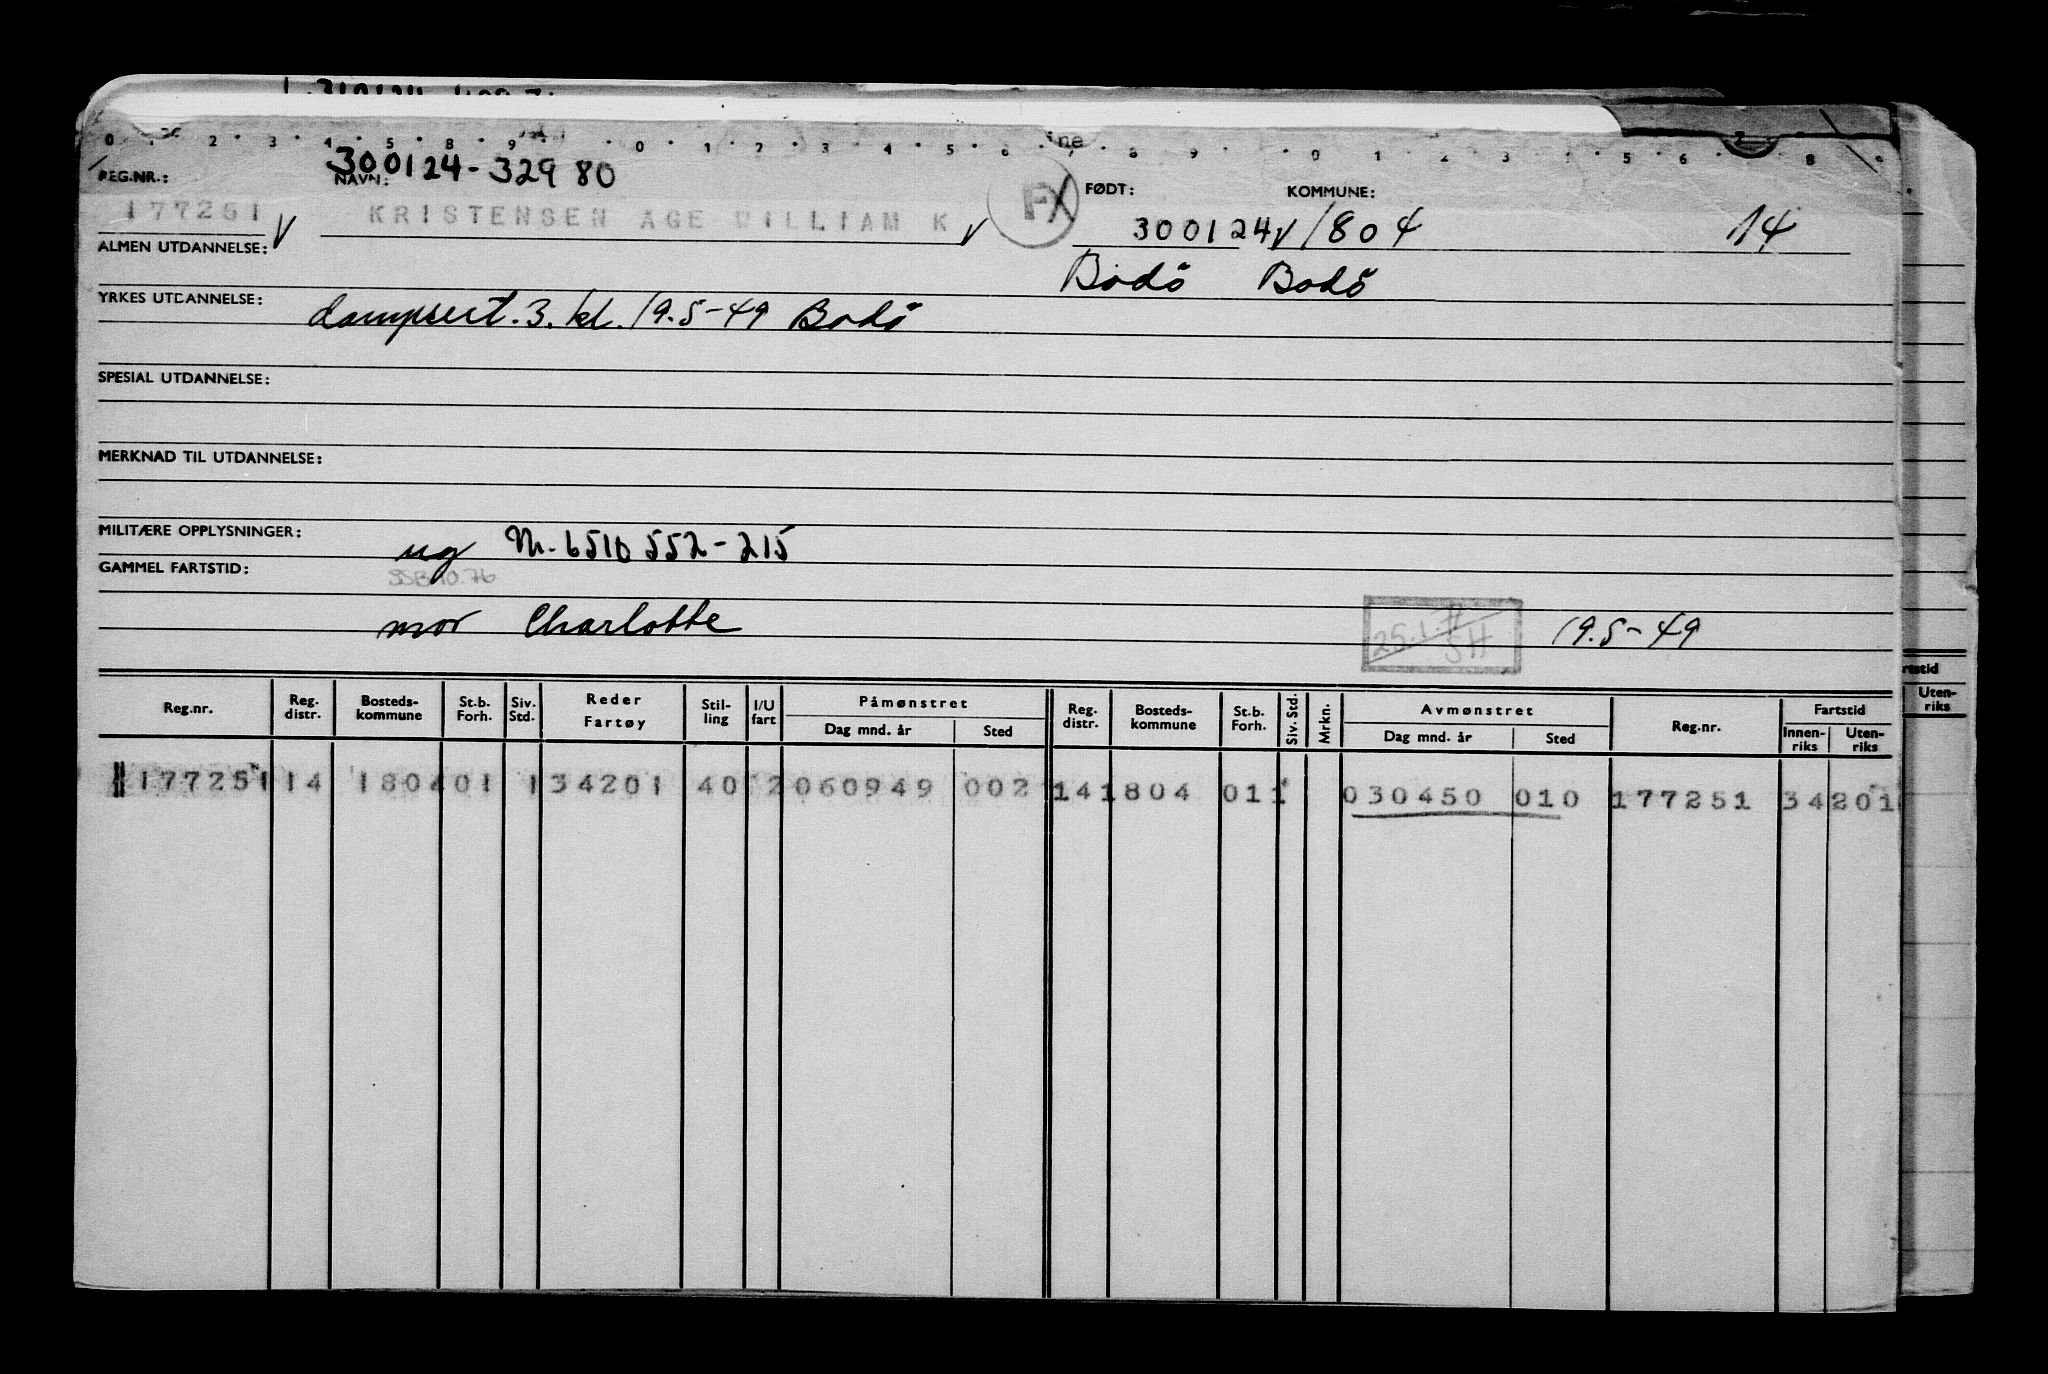 300124-32980
REG.NR.: NAVN: FØDT: KOMMUNE:
177251 V KRISTENSEN AGE WILLIAM K V 300124 V 1804 14
ALMEN UTDANNELSE: Bodö Bodö
YRKES UTDANNELSE: dampsert. 3. kl. 19.5-49 Bodö
SPESIAL UTDANNELSE:
MERKNAD TIL UTDANNELSE:
MILITÆRE OPPLYSNINGER: ug M-6510 552-215
GAMMEL FARTSTID: SSB 10.76
mor Charlotte 19.5-49
Reg.nr. Reg. distr. Bosteds- kommune St.b. Forh. Siv. Std. Reder Fartøy Stil- ling I/U fart Påmønstret Dag mnd. år Sted Reg. distr. Bosteds- kommune St.b. Forh. Siv. Std. Mrkn. Avmønstret Dag mnd. år Sted Reg.nr. Fartstid Innen- riks Uten- riks
177251 14 1804 01 1 34201 40 2 060949 002 14 1804 01 1 030450 010 177251 34201
Uten-
riks